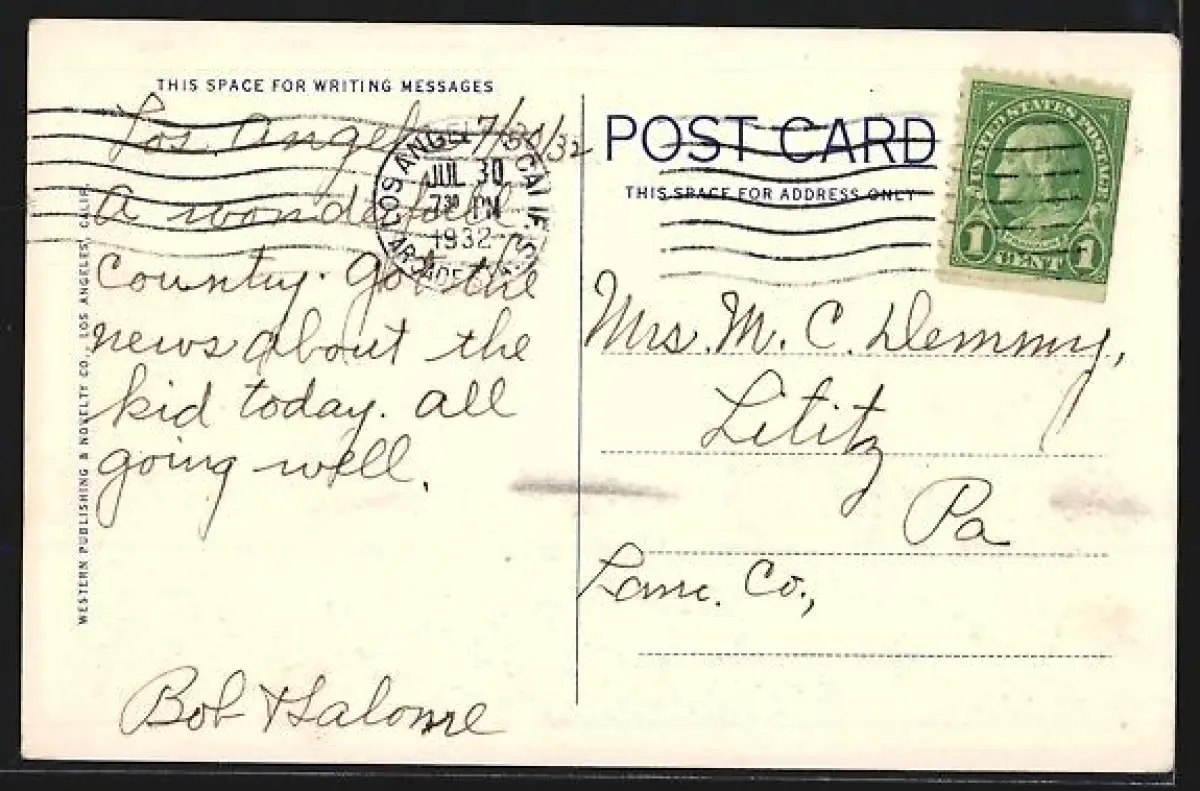 THIS SPACE FOR WRITING MESSAGES
Los Angeles 7/30/32
A wonderful
country. Got the
news about the
kid today. all
going well.
Bob & Salome
WESTERN PUBLISHING & NOVELTY CO., LOS ANGELES, CALIF.
LOS ANGELES CALIF.
JUL 30
7 30 PM
1932
POST CARD
THIS SPACE FOR ADDRESS ONLY
UNITED STATES POSTAGE
1 CENT 1
Mrs. M. C. Demmy,
Lititz
Pa
Lanc. Co.,